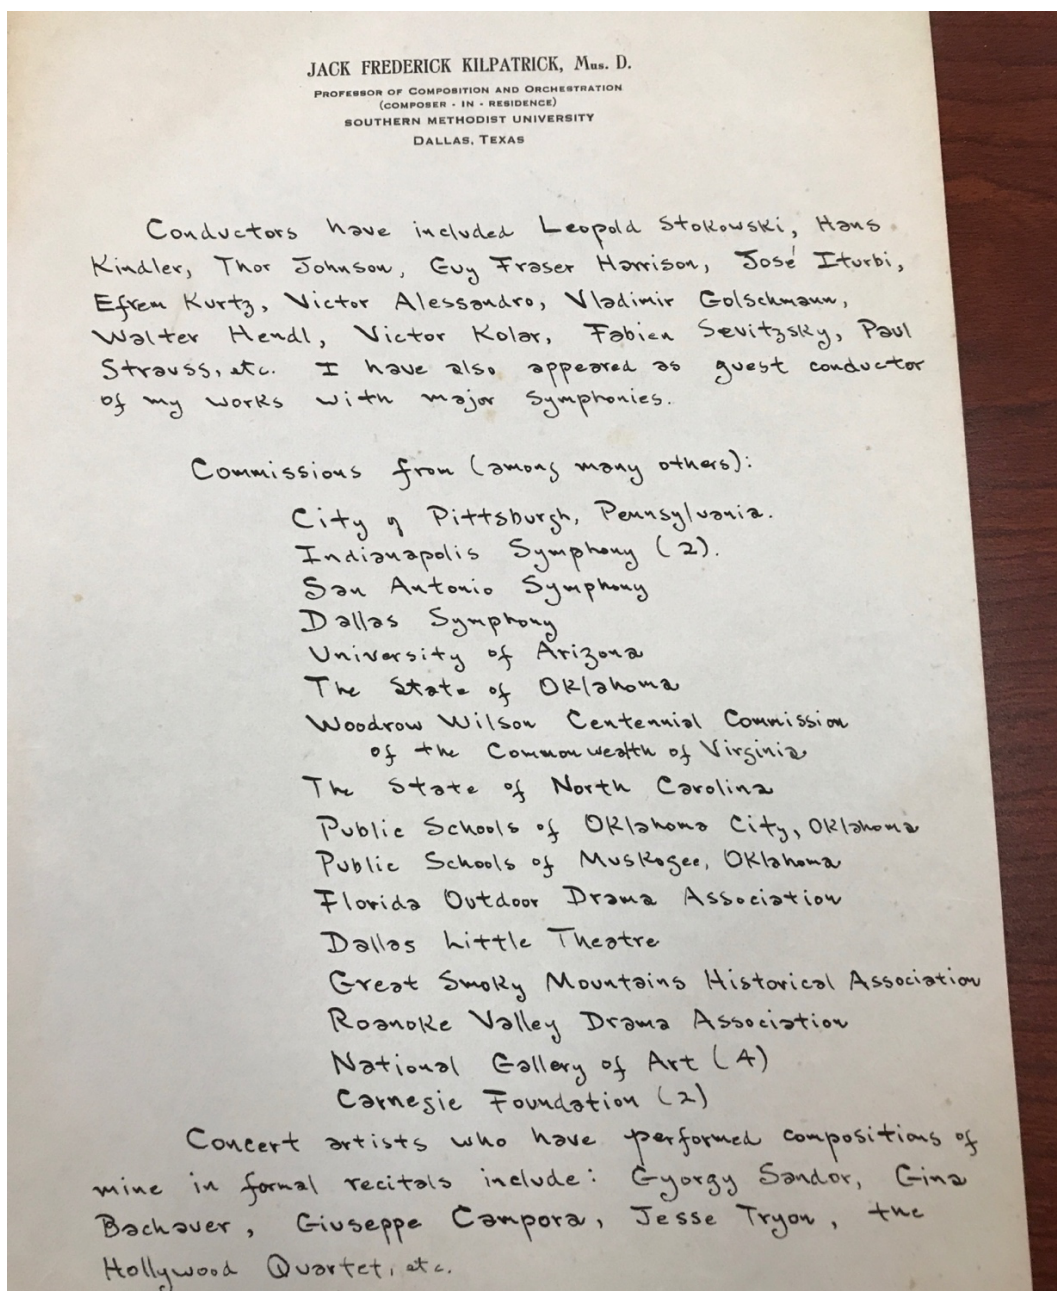 JACK FREDERICK KILPATRICK, Mus. D.
PROFESSOR OF COMPOSITION AND ORCHESTRATION
(COMPOSER - IN - RESIDENCE)
SOUTHERN METHODIST UNIVERSITY
DALLAS, TEXAS
Conductors have included Leopold Stokowski, Hans
Kindler, Thor Johnson, Guy Fraser Harrison, José Iturbi,
Efrem Kurtz, Victor Alessandro, Vladimir Golschmann,
Walter Hendl, Victor Kolar, Fabien Sevitzsky, Paul
Strauss, etc. I have also appeared as guest conductor
of my works with major symphonies.
Commissions from (among many others):
City of Pittsburgh, Pennsylvania.
Indianapolis Symphony (2).
San Antonio Symphony
Dallas Symphony
University of Arizona
The State of Oklahoma
Woodrow Wilson Centennial Commission
of the Commonwealth of Virginia
The State of North Carolina
Public Schools of Oklahoma City, Oklahoma
Public Schools of Muskogee, Oklahoma
Florida Outdoor Drama Association
Dallas Little Theatre
Great Smoky Mountains Historical Association
Roanoke Valley Drama Association
National Gallery of Art (4)
Carnegie Foundation (2)
Concert artists who have performed compositions of
mine in formal recitals include: Gyorgy Sandor, Gina
Bachauer, Giuseppe Campora, Jesse Tryon, the
Hollywood Quartet, etc.